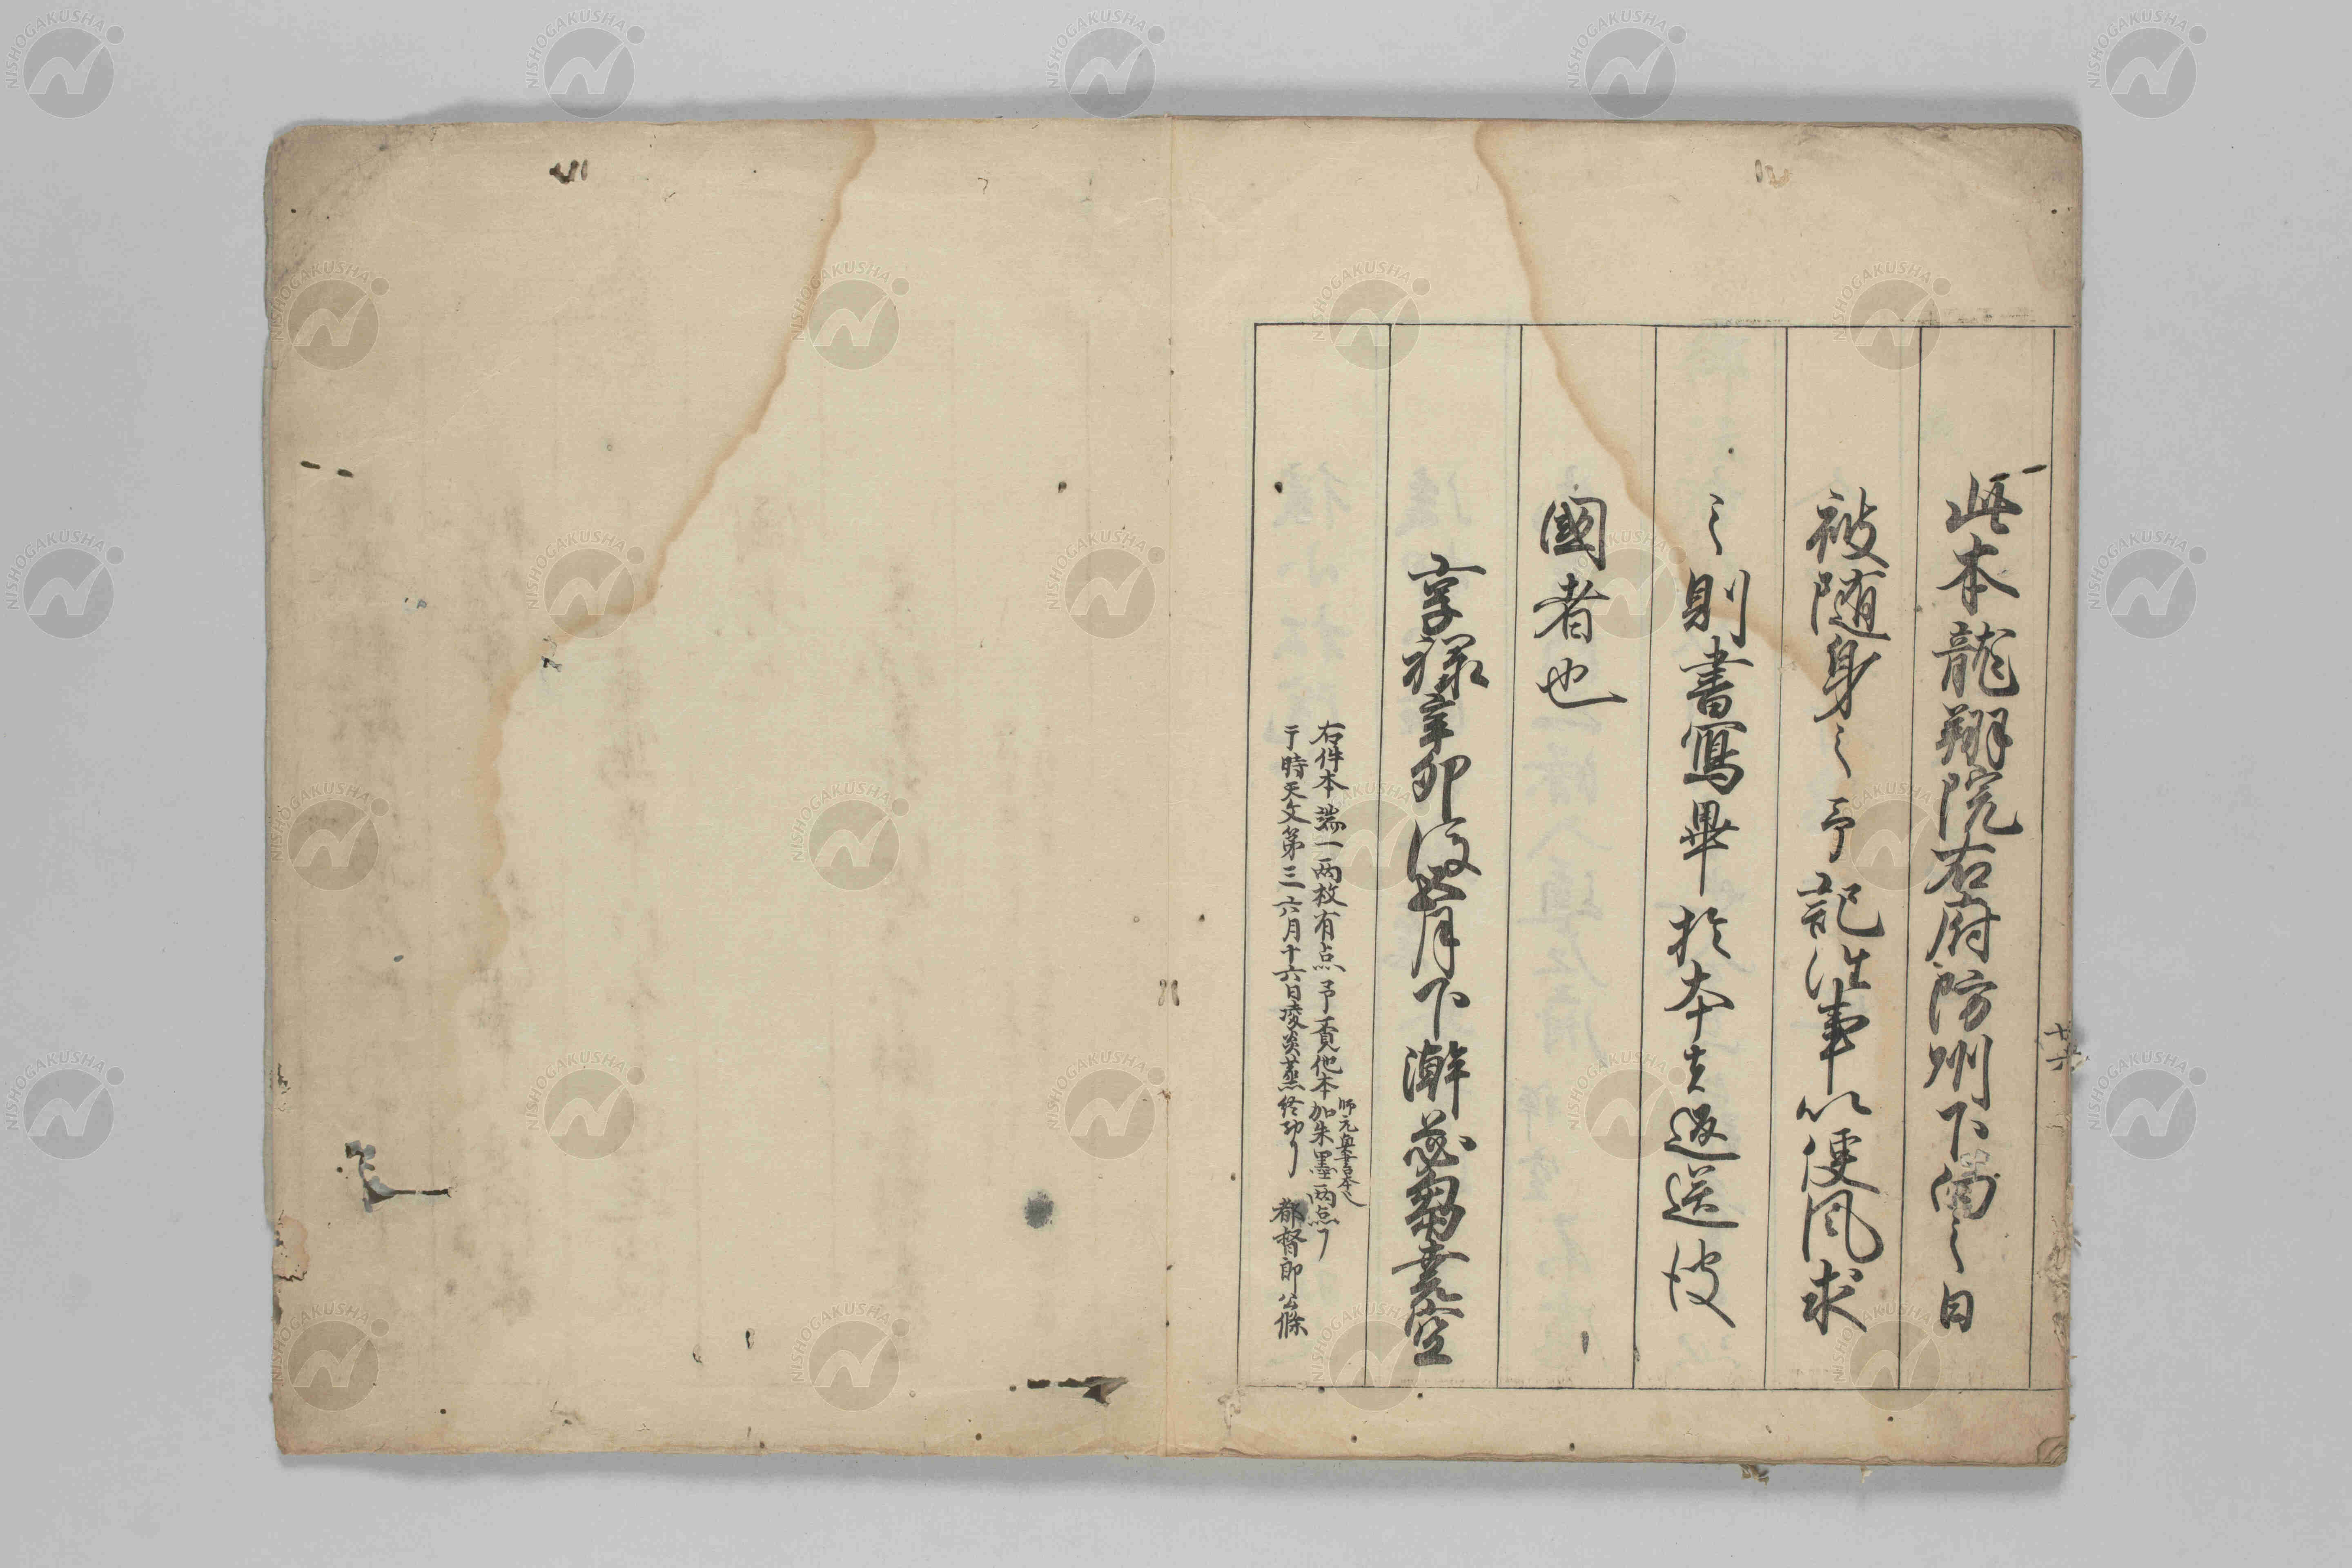 此本龍翔院右府防州下向之日
被随身之予記江事以便風求
之則書寫畢於本者返送彼
國者也
享禄辛卯後五月下澣蒭蕘堯空
右件本端一両枚有点予覓他本加朱墨両点了
師元奥書本也
于時天文第三六月十六日凌炎蒸終功了 都督郎公條
NISHOGAKUSHA